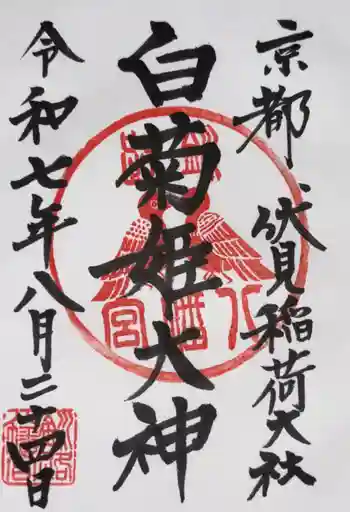 京都、伏見稲荷大社
白菊姫大神
令和七年八月二十四日
八幡宮